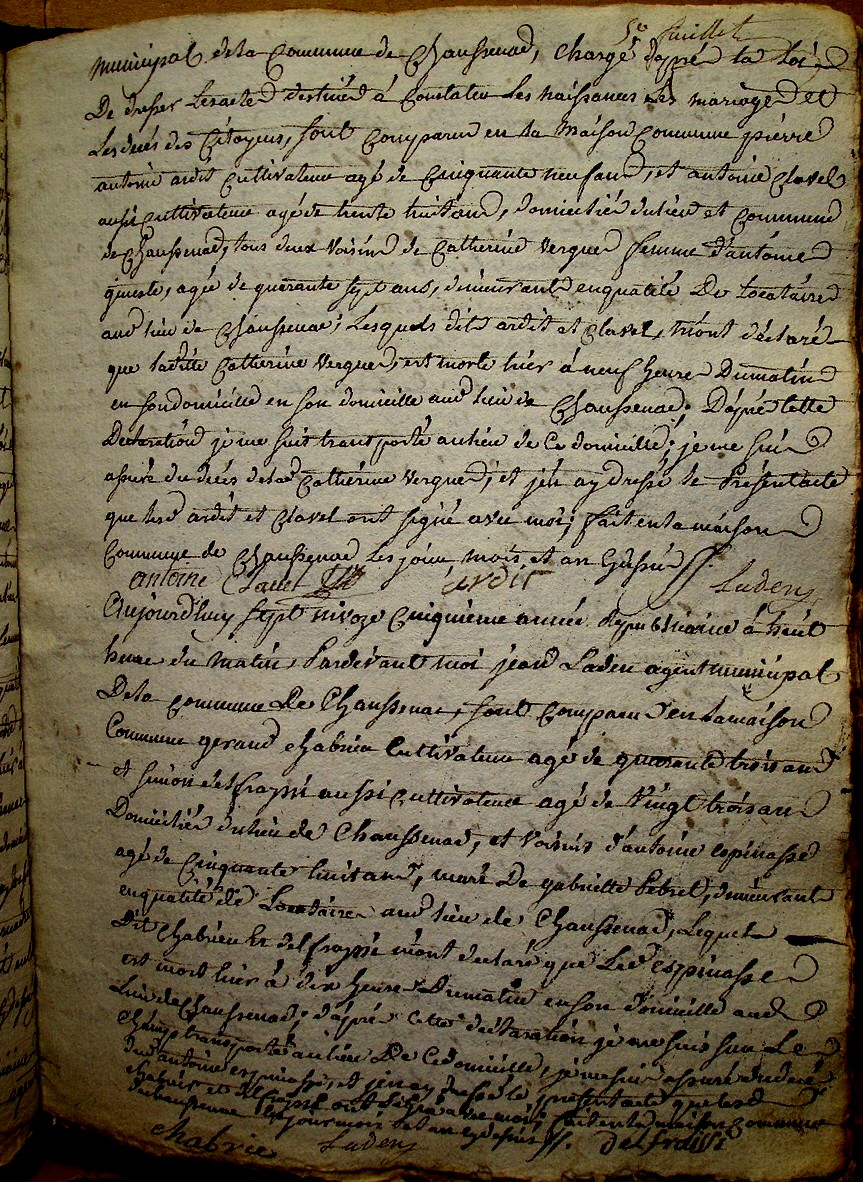 5e feuillet
municipal de la Commune de Chaussenad, chargé daprés la Loi,
De dresser Les acted destinéd à Constater Les naissances Les mariaged et
Les decés des Citoyens, sont Comparus en la maison Commune pierre
antoine ardit Cultivateur agé de Cinquante neuf and, et antoine Clavel
aussi Cultivateur agé de trente huit and, domiciliéd du lieu et Commune
de Chaussenad, tous deux Voisins de Catherine Vergned femme d'antoine
, agée de quarante sept ans, demeurant en qualité De Locataire
aud lieu de Chaussenac; Lesquels dits ardit et Clavel, m'ont déclaré
que ladite Catherine Vergned, est morte hier à neuf heures Dumatin
en son domicille en son domicille aud lieu de Chaussenad; Daprés Cette
Declaration je me suis transporté au lieu de Ce domicille; je me suis
assuré du decés de lad Catherine Vergned; et j'en ay dressé le Présent acte
que lesd ardit et Clavel ont signé avec moi; fait en la maison
Commune de Chaussenad Les jour, mois et an
antoine Clavel ardit Laden
Aujourdhuy sept nivoze Cinquieme année Republicaine à huit
heure du matin, Pardevant moi jean Laden agent municipal
De la Commune De Chaussenac, sont Comparu en la maison
Commune gerand chabrier Cultivateur agé de quarante trois and
et simon delfraissi aussi Cultivateur agé de Vingt trois and
Domicilié du lieu de Chaussenad, et Voisins d'antoine espinasse
agé de Cinquante huit and, mari De gabrielle , demeurant
en qualité de Locataire aud lieu de Chaussenad, Lequel
Dit Chabrier Et delfraissi m'ont declaré que Led espinasse
est mort hier à dix heure Dumatin en son domicille aud
Lieu de Chaussenad; daprés Cette declaration je me suis sur Le
Champ transporté au lieu De Ce domicille, je me suis assuré du decé
dud antoine espinasse, et j'en ay dressé le présent acte que lesd
chabrier et delfraissi ont signé avec moi; fait en la maison Commune
de chaussenac les jour mois et an
chabrie Laden delfraissi